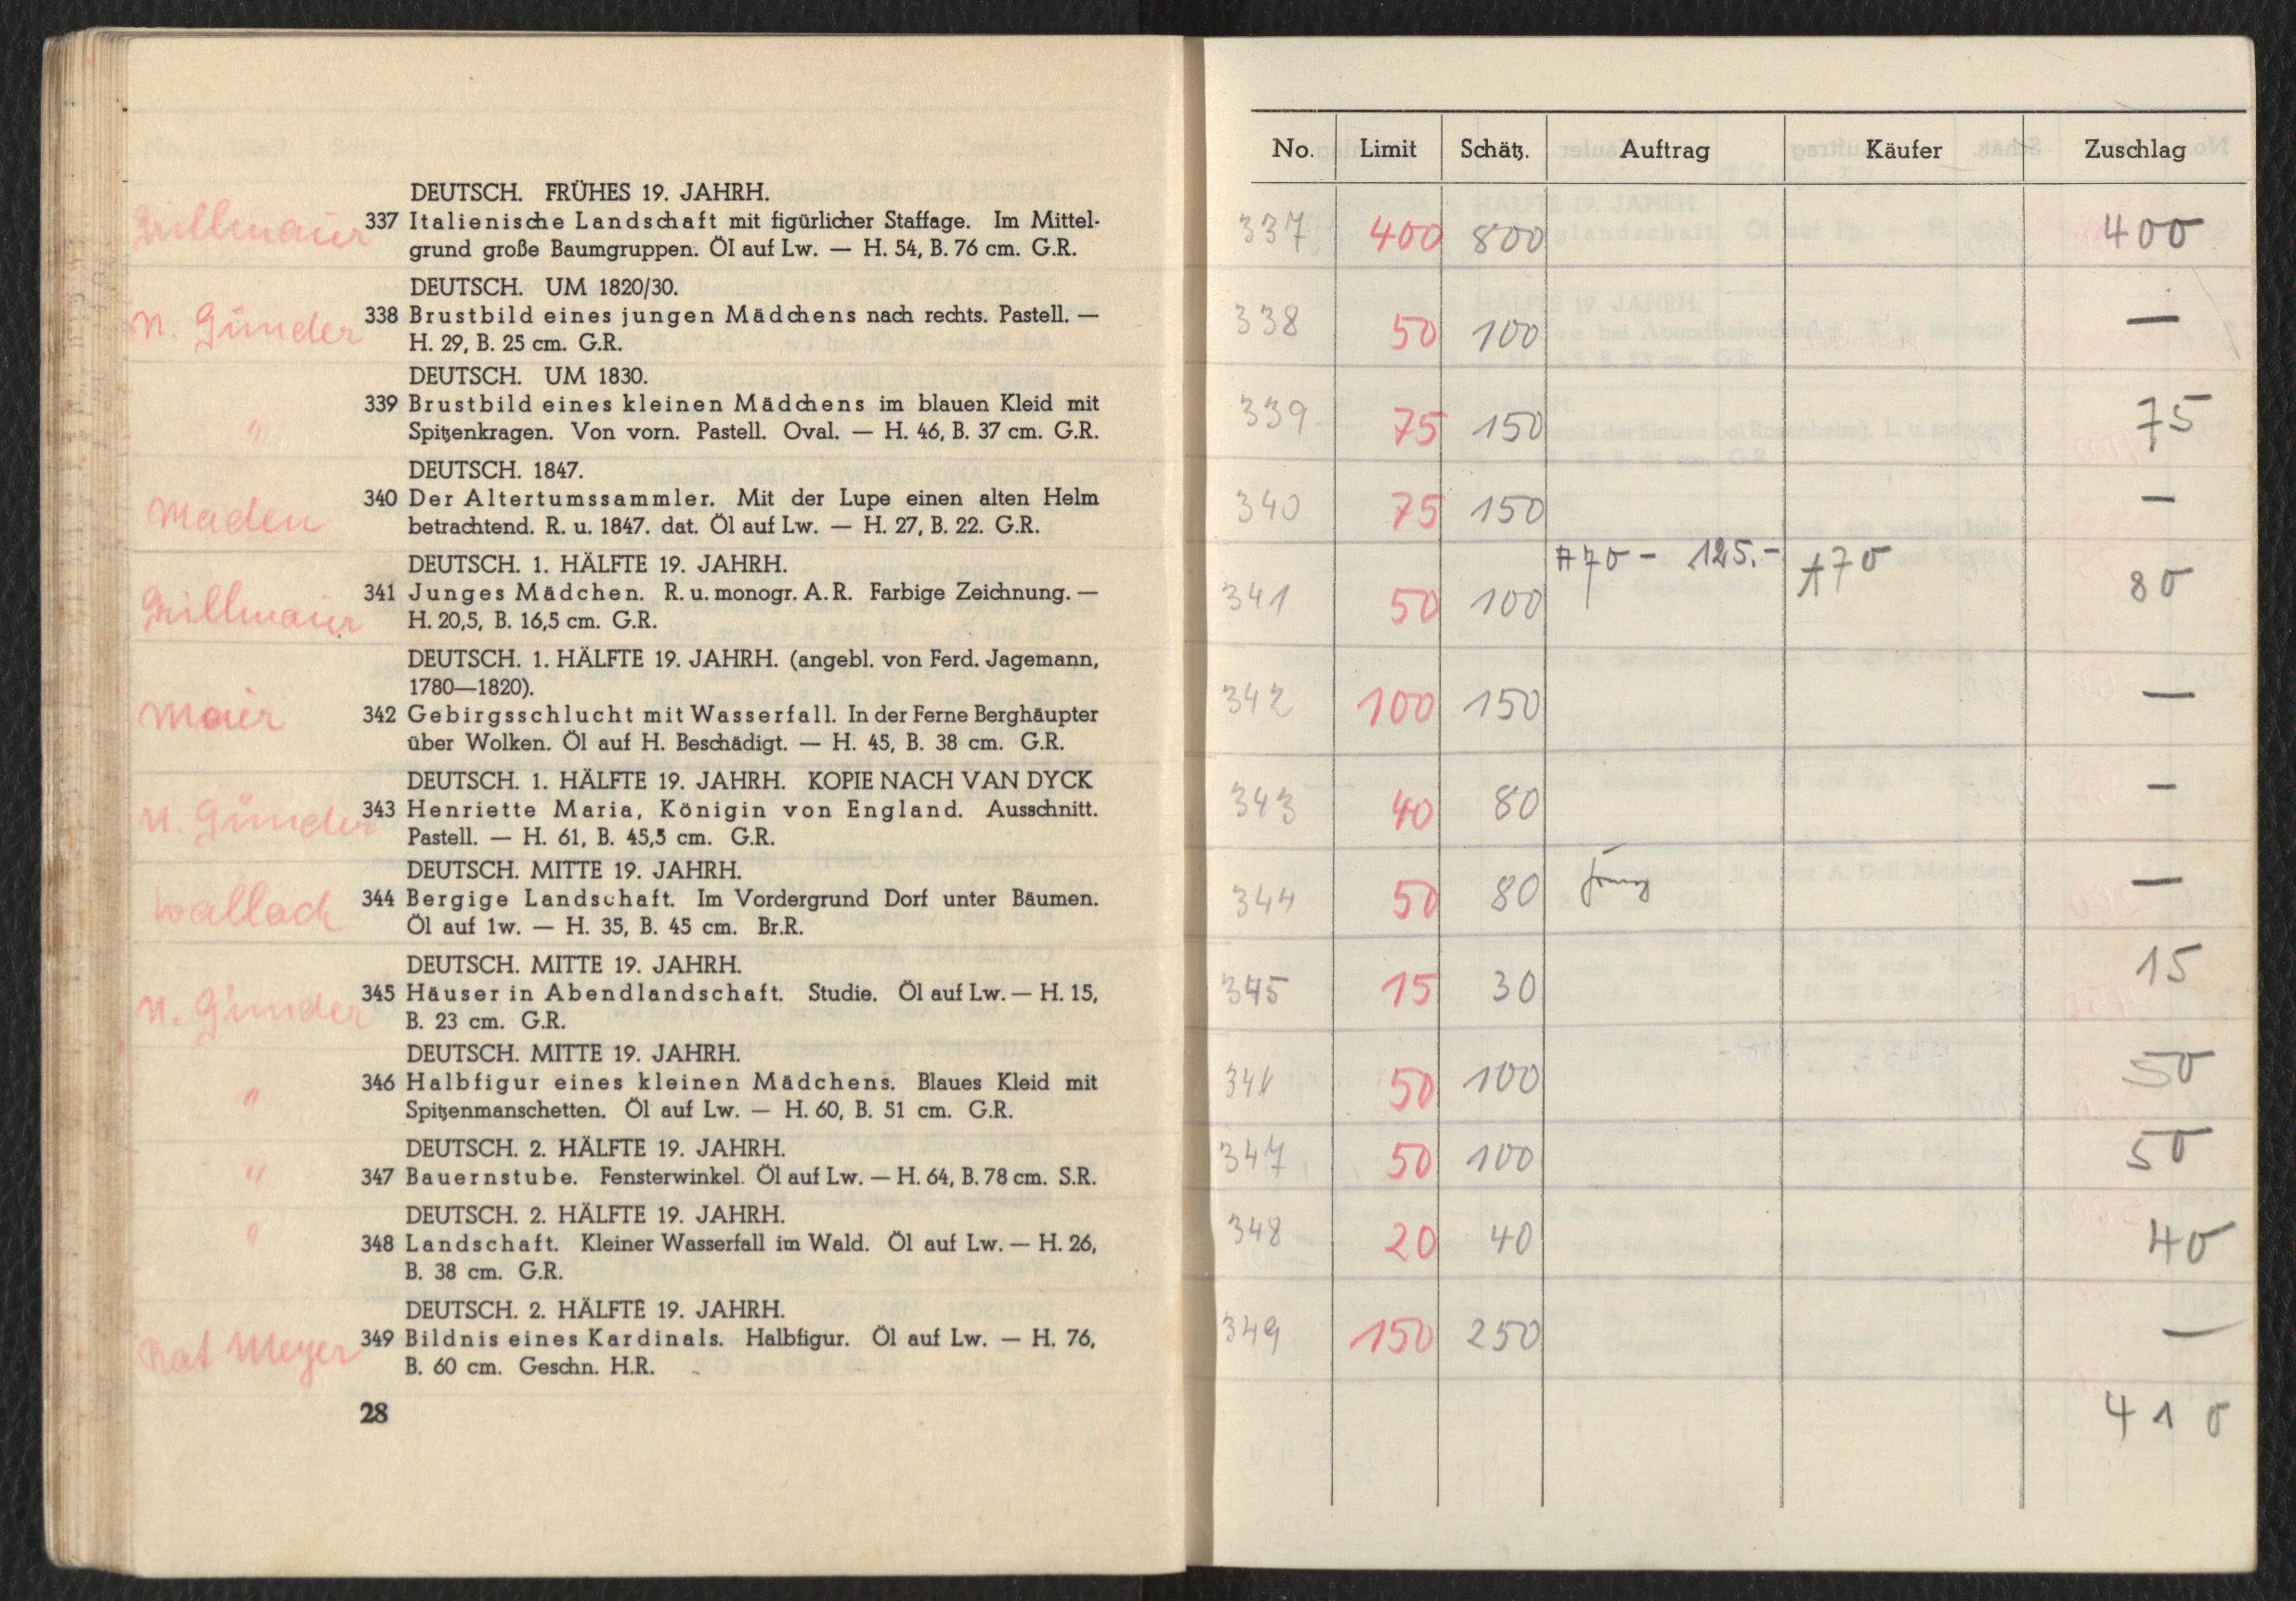 DEUTSCH. FRÜHES 19. JAHRH.
337 Italienische Landschaft mit figürlicher Staffage. Im Mittel-
grund große Baumgruppen. Öl auf Lw. — H. 54, B. 76 cm. G.R.
DEUTSCH. UM 1820/30.
N. Günder 338 Brustbild eines jungen Mädchens nach rechts. Pastell. —
H. 29, B. 25 cm. G.R.
DEUTSCH. UM 1830.
" 339 Brustbild eines kleinen Mädchens im blauen Kleid mit
Spitzenkragen. Von vorn. Pastell. Oval. — H. 46, B. 37 cm. G.R.
DEUTSCH. 1847.
Maden 340 Der Altertumssammler. Mit der Lupe einen alten Helm
betrachtend. R. u. 1847. dat. Öl auf Lw. — H. 27, B. 22. G.R.
DEUTSCH. 1. HÄLFTE 19. JAHRH.
341 Junges Mädchen. R. u. monogr. A. R. Farbige Zeichnung. —
H. 20,5, B. 16,5 cm. G.R.
DEUTSCH. 1. HÄLFTE 19. JAHRH. (angebl. von Ferd. Jagemann,
1780—1820).
Maier 342 Gebirgsschlucht mit Wasserfall. In der Ferne Berghäupter
über Wolken. Öl auf H. Beschädigt. — H. 45, B. 38 cm. G.R.
DEUTSCH. 1. HÄLFTE 19. JAHRH. KOPIE NACH VAN DYCK
N. Günder 343 Henriette Maria, Königin von England. Ausschnitt.
Pastell. — H. 61, B. 45,5 cm. G.R.
DEUTSCH. MITTE 19. JAHRH.
Wallach 344 Bergige Landschaft. Im Vordergrund Dorf unter Bäumen.
Öl auf 1w. — H. 35, B. 45 cm. Br.R.
DEUTSCH. MITTE 19. JAHRH.
N. Günder 345 Häuser in Abendlandschaft. Studie. Öl auf Lw. — H. 15,
B. 23 cm. G.R.
DEUTSCH. MITTE 19. JAHRH.
" 346 Halbfigur eines kleinen Mädchens. Blaues Kleid mit
Spitzenmanschetten. Öl auf Lw. — H. 60, B. 51 cm. G.R.
DEUTSCH. 2. HÄLFTE 19. JAHRH.
" 347 Bauernstube. Fensterwinkel. Öl auf Lw. — H. 64, B. 78 cm. S.R.
DEUTSCH. 2. HÄLFTE 19. JAHRH.
" 348 Landschaft. Kleiner Wasserfall im Wald. Öl auf Lw. — H. 26,
B. 38 cm. G.R.
DEUTSCH. 2. HÄLFTE 19. JAHRH.
Rat Meyer 349 Bildnis eines Kardinals. Halbfigur. Öl auf Lw. — H. 76,
B. 60 cm. Geschn. H.R.
28
No. Limit Schätz. Auftrag Käufer Zuschlag
337 400 800 400
338 50 100 —
339. 75 150 75
340 75 150 —
341 50 100 A70 - 125.- A70 80
342 100 150 —
343 40 80 —
344 50 80 —
345 15 30 15
346 50 100 50
347 50 100 50
348 20 40 40
349 150 250 —
410